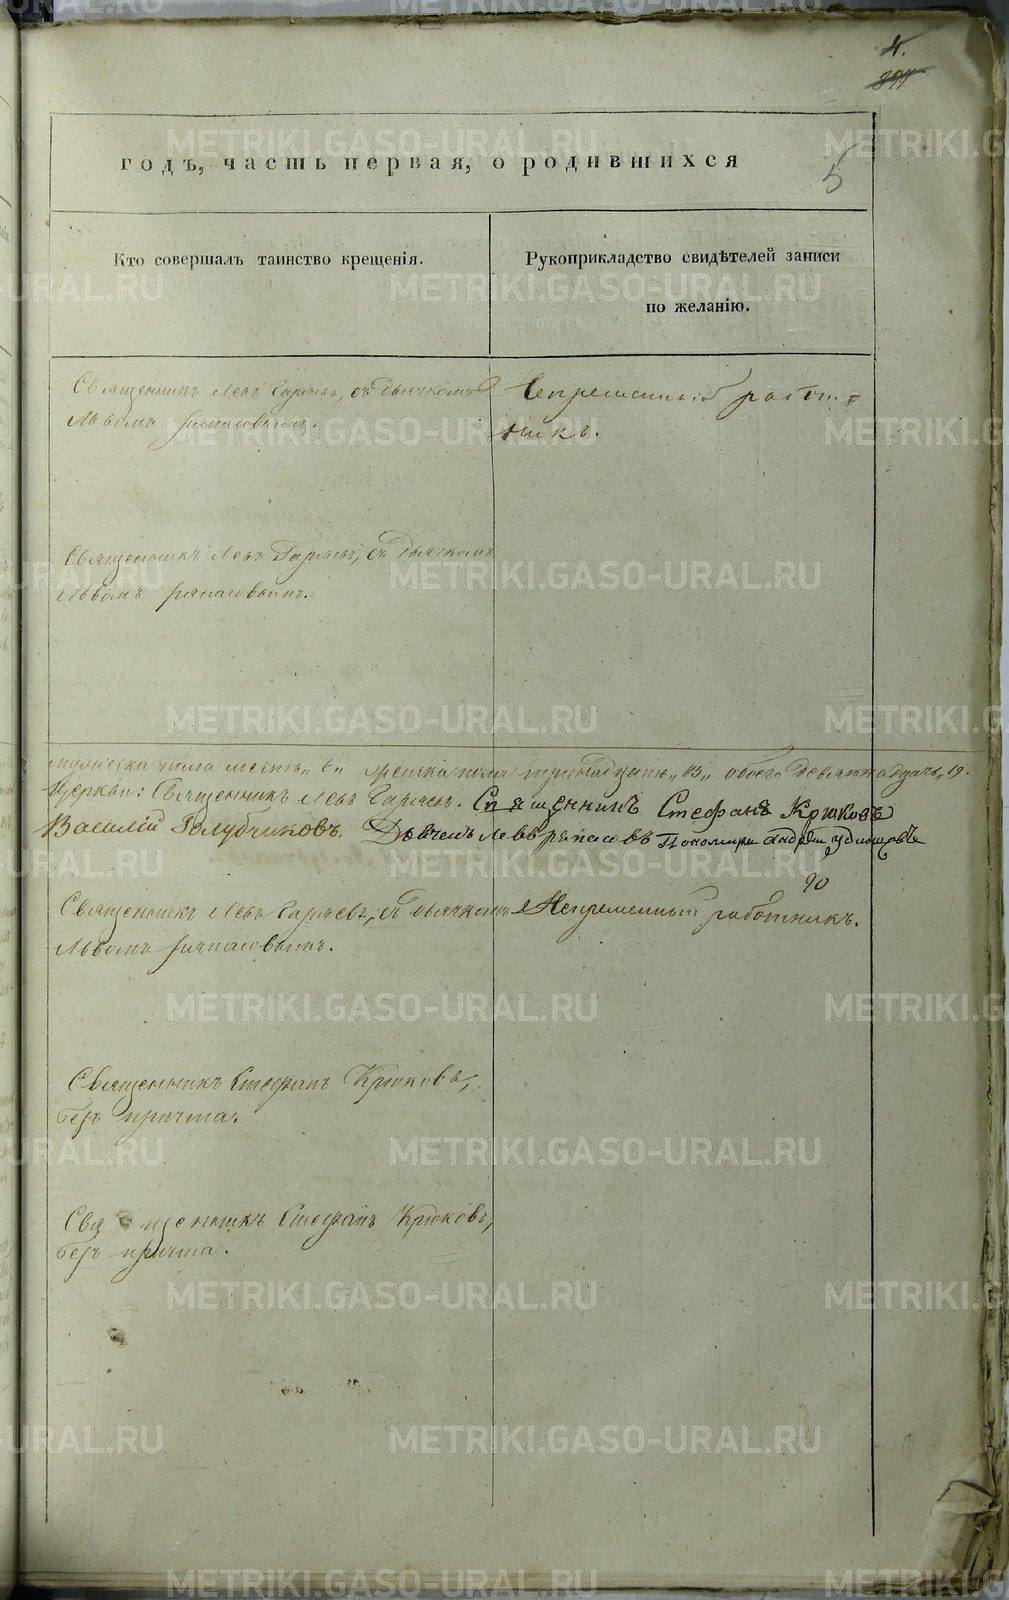 4.
годъ, часть первая, о родившихся
5
Кто совершалъ таинство крещенія.
Рукоприкладство свидѣтелей записи
по желанію.
Священникъ Левъ Гаряевъ, съ дьячкомъ
Львомъ
Непременный работ=
никъ.
Священникъ Левъ Гаряевъ, съ дьячкомъ
Львомъ
мужеска пола шесть „6„ женска пола тринадцать „13„ обоего девятнадцать „19.
Церкви: Священникъ Левъ Гаряевъ. Священникъ Стефанъ Крюковъ
Василій Голубчиковъ. Дьячекъ Левъ Пономарь Андрей
90
Священникъ Левъ Гаряевъ, съ дьячкомъ
Львомъ
Непременный работникъ.
Священникъ Стефанъ Крюковъ,
безъ причта.
Священникъ Стефанъ Крюковъ,
безъ причта.
METRIKI.GASO-URAL.RU